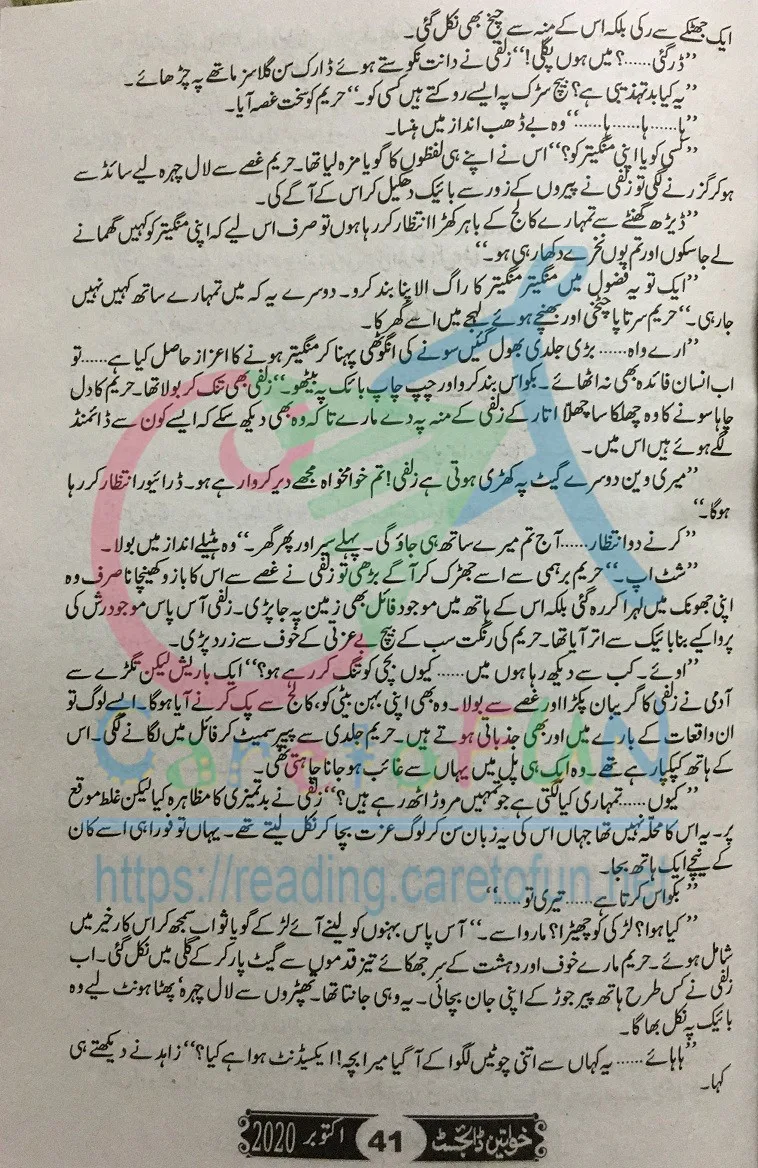 ایک جھٹکے سے رکی بلکہ اس کے منہ سے چیخ بھی نکل گئی۔
’’ڈر گئی……؟ میں ہوں پگلی!‘‘ زلفی نے دانت نکوستے ہوئے ڈارک سن گلاسز ماتھے پہ چڑھائے۔
’’یہ کیا بدتہذیبی ہے؟ بیچ سڑک پہ ایسے روکتے ہیں کسی کو۔‘‘ حریم کو سخت غصہ آیا۔
’’ہا…… ہا…… ہا……‘‘ وہ بے ڈھب انداز میں ہنسا۔
’’کسی کو یا اپنی منگیتر کو؟‘‘ اس نے اپنے ہی لفظوں کا گویا مزہ لیا تھا۔ حریم غصے سے لال چہرہ لیے سائڈ سے
ہو کر گزرنے لگی تو زلفی نے پیروں کے زور سے بائیک دھکیل کر اس کے آگے کی۔
’’ڈیڑھ گھنٹے سے تمہارے کالج کے باہر کھڑا انتظار کر رہا ہوں تو صرف اس لیے کہ اپنی منگیتر کو کہیں گھمانے
لے جا سکوں اور تم یوں نخرے دکھا رہی ہو۔‘‘
’’ایک تو یہ فضول میں منگیتر منگیتر کا راگ الاپنا بند کرو۔ دوسرے یہ کہ میں تمہارے ساتھ کہیں نہیں
جا رہی۔‘‘ حریم سرتاپا چٹخی اور بھنچے ہوئے لہجے میں اسے گھر کا۔
’’ارے واہ…… بڑی جلدی بھول گئیں سونے کی انگوٹھی پہنا کر منگیتر ہونے کا اعزاز حاصل کیا ہے…… تو
اب انسان فائدہ بھی نہ اٹھائے۔ بکواس بند کرو اور چپ چاپ بائک پہ بیٹھو۔‘‘ زلفی بھی تنک کر بولا تھا۔ حریم کا دل
چاہا سونے کا وہ چھلکا سا چھلّا اتار کے زلفی کے منہ پہ دے مارے تا کہ وہ بھی دیکھ سکے کہ ایسے کون سے ڈائمنڈ
لگے ہوئے ہیں اس میں۔
’’میری وین دوسرے گیٹ پہ کھڑی ہوتی ہے زلفی! تم خوامخواہ مجھے دیر کروا رہے ہو۔ ڈرائیور انتظار کر رہا
ہوگا۔‘‘
’’کرنے دو انتظار…… آج تم میرے ساتھ ہی جاؤ گی۔ پہلے سیر اور پھر گھر۔‘‘ وہ ہٹیلے انداز میں بولا۔
’’شٹ اپ۔‘‘ حریم برہمی سے اسے جھڑک کر آگے بڑھی تو زلفی نے غصے سے اس کا بازو کھینچا نا صرف وہ
اپنی جھونک میں لہرا کر رہ گئی بلکہ اس کے ہاتھ میں موجود فائل بھی زمین پہ جا پڑی۔ زلفی آس پاس موجود رش کی
پروا کیے بنا بائیک سے اتر آیا تھا۔ حریم کی رنگت سب کے بیچ بے عزتی کے خوف سے زرد پڑی۔
’’اوئے۔ کب سے دیکھ رہا ہوں میں…… کیوں بچی کو تنگ کر رہے ہو؟‘‘ ایک باریش لیکن تگڑے سے
آدمی نے زلفی کا گریبان پکڑا اور غصے سے بولا۔ وہ بھی اپنی بہن بیٹی کو، کالج سے پک کرنے آیا ہوگا۔ ایسے لوگ تو
ان واقعات کے بارے میں اور بھی جذباتی ہوتے ہیں۔ حریم جلدی سے پیپر سمیٹ کر فائل میں لگانے لگی۔ اس
کے ہاتھ کپکپا رہے تھے۔ وہ ایک ہی پل میں یہاں سے غائب ہو جانا چاہتی تھی۔
’’کیوں…… تمہاری کیا لگتی ہے جو تمہیں مروڑ اٹھ رہے ہیں؟‘‘ زلفی نے بدتمیزی کا مظاہرہ کیا لیکن غلط موقع
پر۔ یہ اس کا محلہ نہیں تھا جہاں اس کی یہ زبان سن کر لوگ عزت بچا کر نکل لیتے تھے۔ یہاں تو فوراً ہی اسے کان
کے نیچے ایک ہاتھ بجا۔
’’بکواس کرتا ہے…… تیری تو……‘‘
’’کیا ہوا؟ لڑکی کو چھیڑا؟ مارو اسے۔‘‘ آس پاس بہنوں کو لینے آئے لڑکے گویا ثواب سمجھ کر اس کارخیر میں
شامل ہوئے۔ حریم مارے خوف اور دہشت کے سر جھکائے تیز قدموں سے گیٹ پار کر کے گلی میں نکل گئی۔ اب
زلفی نے کس طرح ہاتھ پیر جوڑ کے اپنی جان بچائی۔ یہ وہی جانتا تھا۔ تھپڑوں سے لال چہرہ‘ پھٹا ہونٹ لیے وہ
بائیک پہ نکل بھاگا۔
’’ہا ہائے…… یہ کہاں سے اتنی چوٹیں لگوا کے آ گیا میرا بچہ! ایکسیڈنٹ ہوا ہے کیا؟‘‘ زاہد نے دیکھتے ہی
کہا۔
CaretoFUN
https://reading.caretofun.net
خواتین ڈائجسٹ 41 اکتوبر 2020